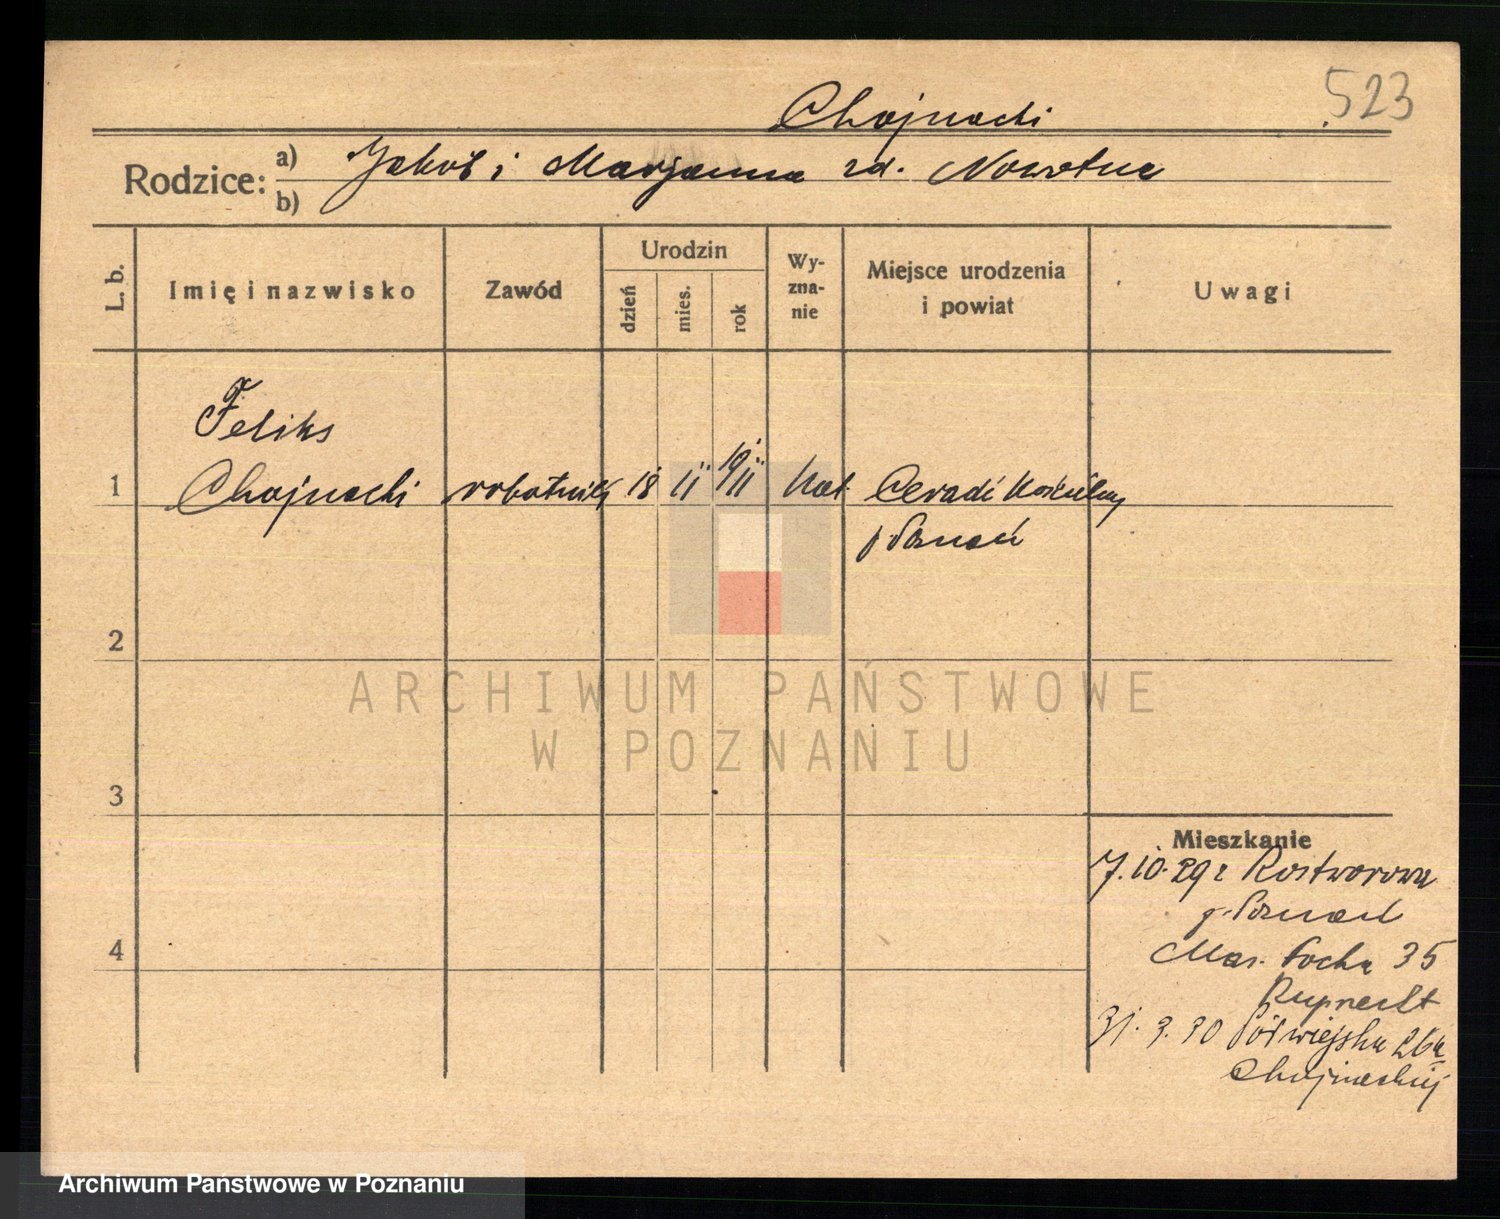 523
Chojnacki
Rodzice: a) Jakób i Marjanna zd. Nowotna
b)
L. b. Imię i nazwisko Zawód Urodzin dzień mies. rok Wyznanie Miejsce urodzenia i powiat Uwagi
Feliks
1 Chojnacki robotnik 18 11 1911 kat. Ceradz Kościelny
p. Poznań
2
ARCHIWUM PAŃSTWOWE
W POZNANIU
3
Mieszkanie
7.10.29 z Rostworowa
p. Poznań
4
Mar. Focha 35
Ruprecht
31. 3. 30 Półwiejska 26a
Chojnackiej
Archiwum Państwowe w Poznaniu